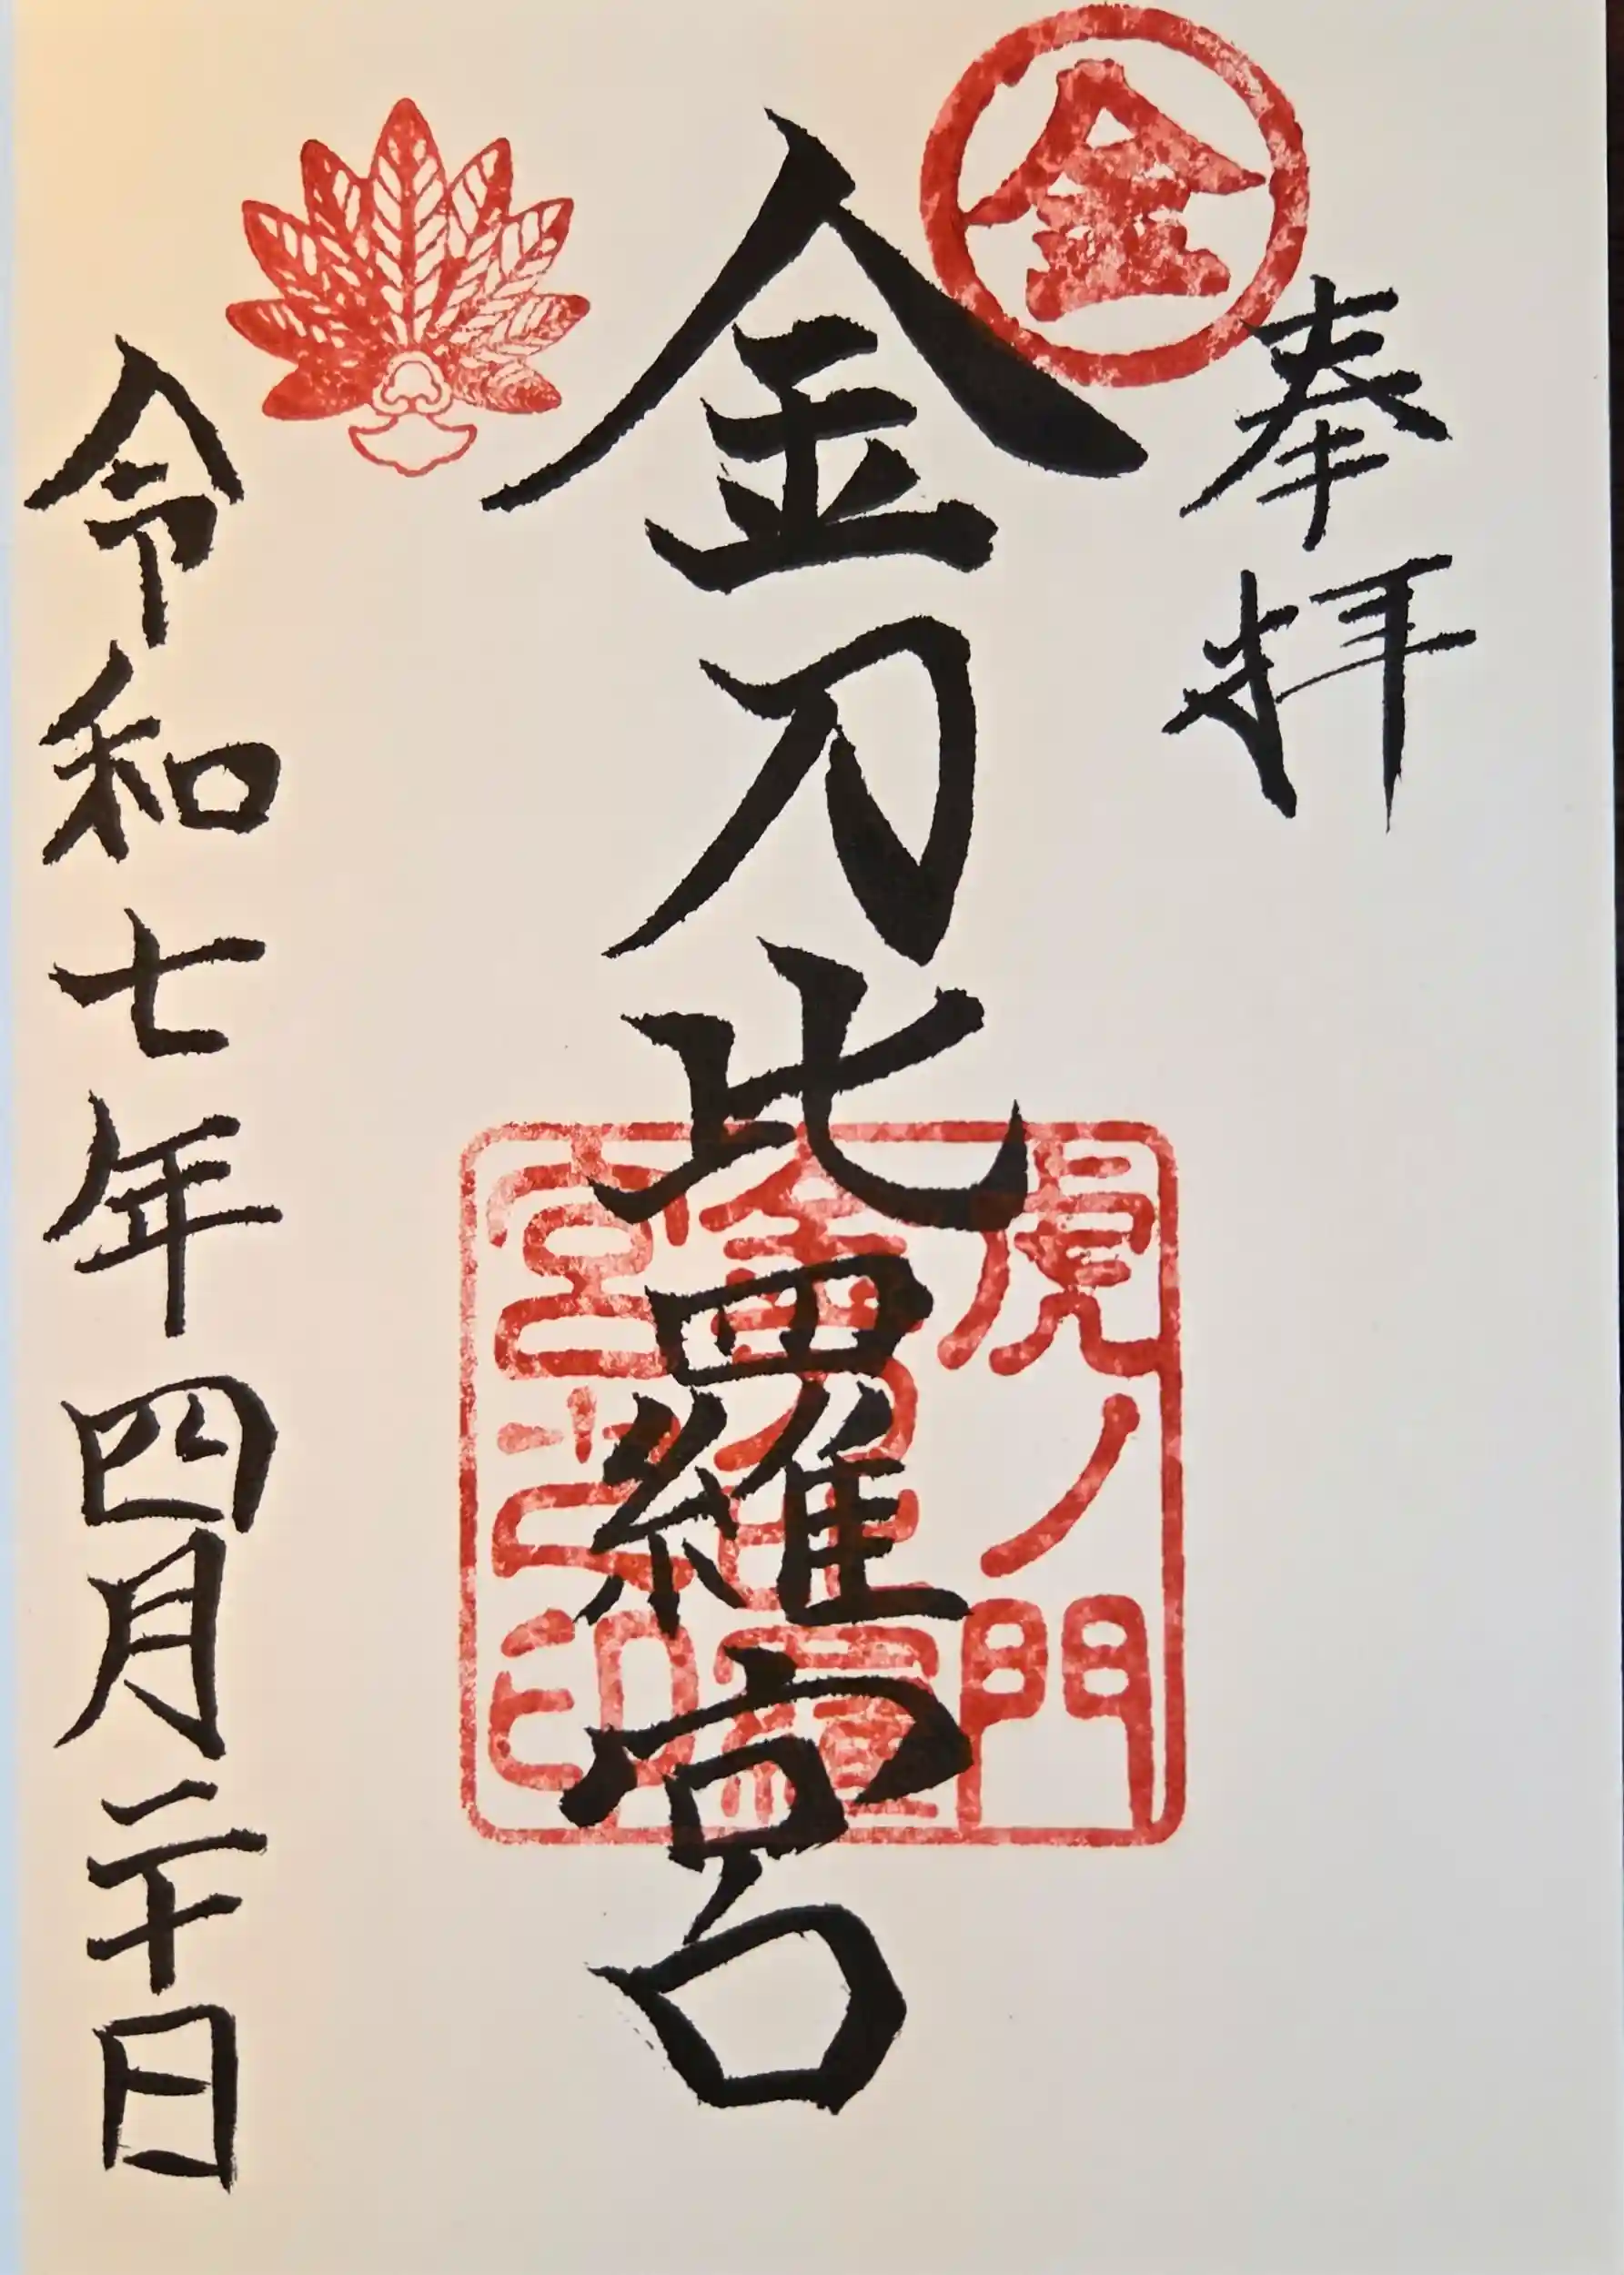 奉拝
金
金刀比羅宮
虎ノ門
金刀比羅宮
令和七年四月二十日